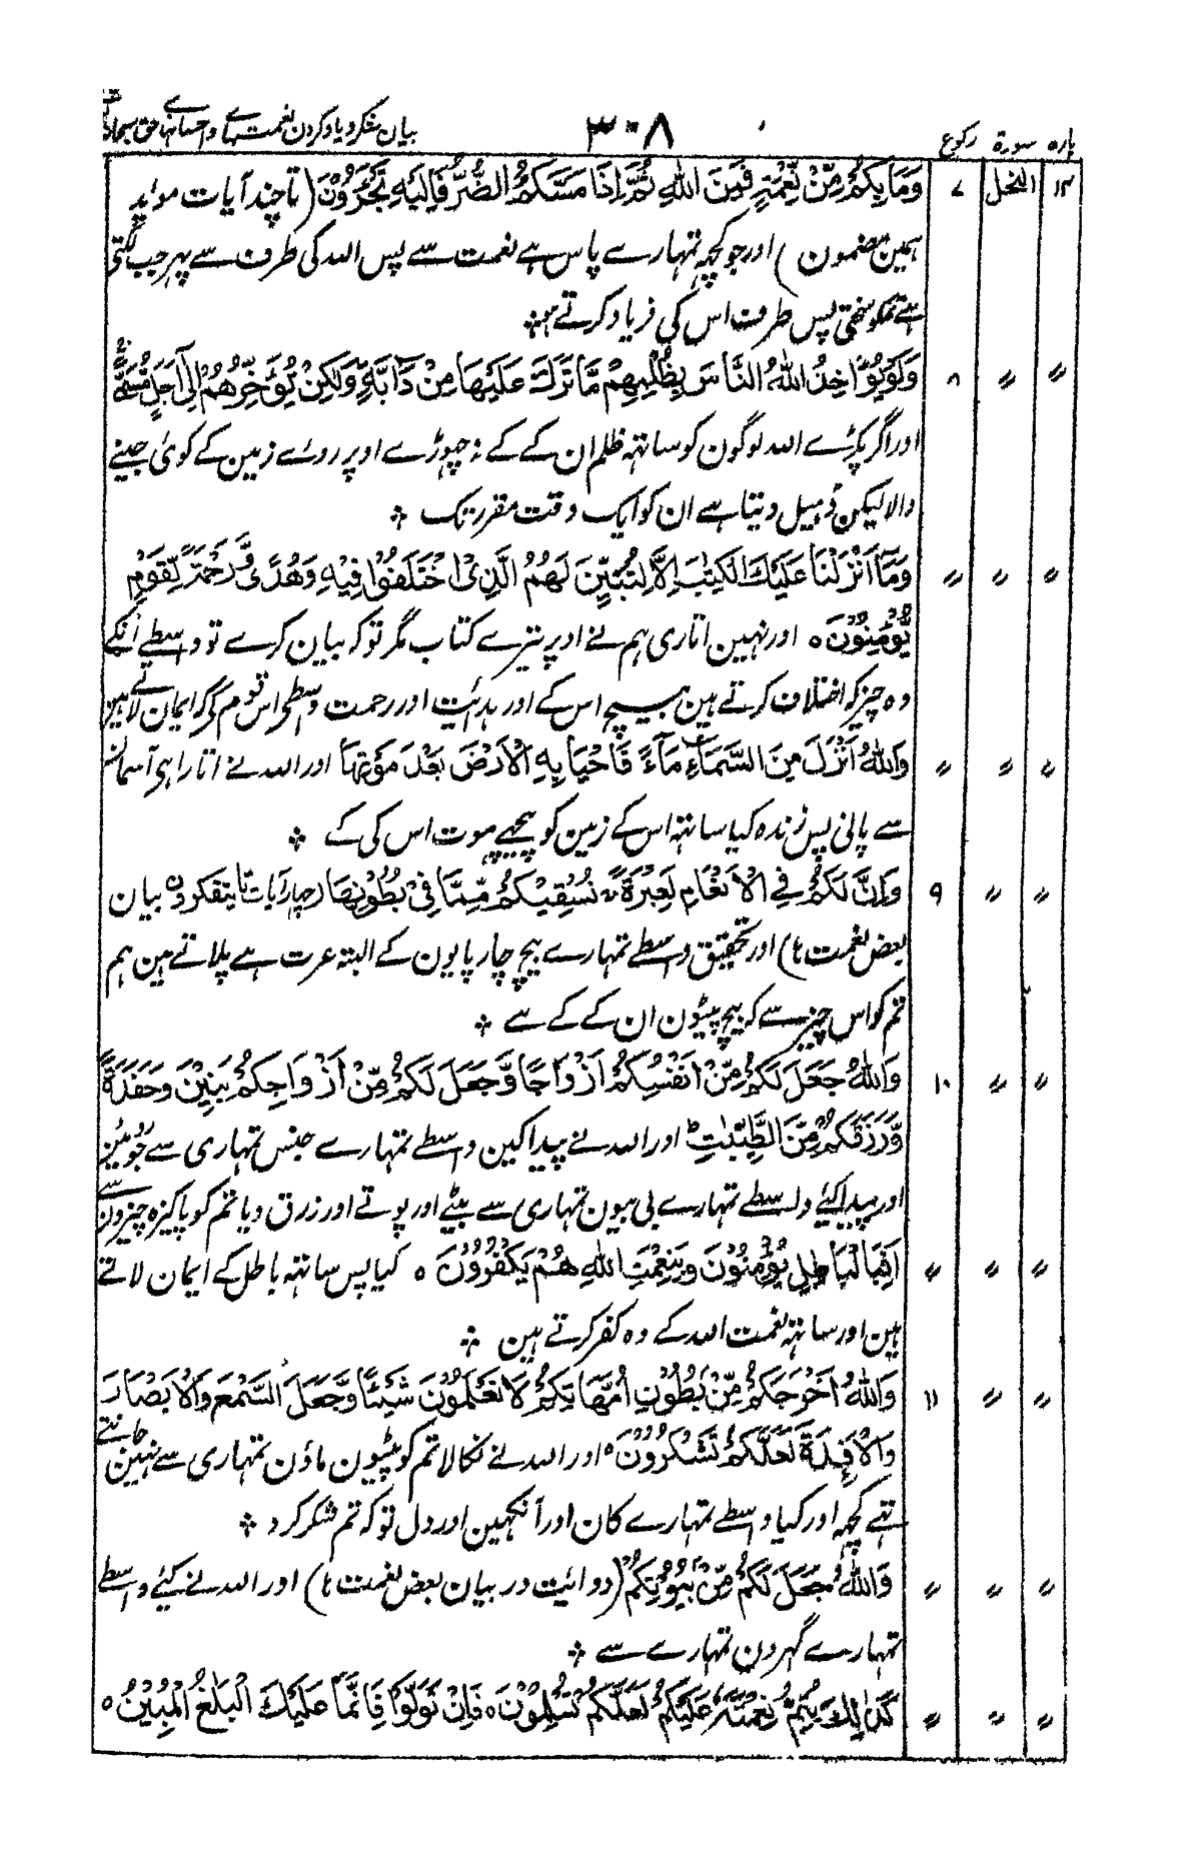 پارہ سورۃ رکوع ۳۰۸ بیان شکر و یاد کردن نعمتہاے و احسانہاے حق سبحانہ
۱۴ النحل ۷ وَمَا بِكُمْ مِّنْ نِّعْمَةٍ فَمِنَ اللّٰهِ ثُمَّ اِذَا مَسَّكُمُ الضُّرُّ فَاِلَيْهِ تَجْـَٔرُوْنَ (تا چند آیات موئد
ہمین مضمون) اور جو کچہہ تمہارے پاس ہے نعمت سے پس اللہ کی طرف سے پہر جب لگتی
ہے تمکو سختی پس طرف اس کی فریاد کرتے ہو ؞
〃 〃 ۸ وَلَوْ يُؤَاخِذُ اللّٰهُ النَّاسَ بِظُلْمِهِمْ مَّا تَرَكَ عَلَيْهَا مِنْ دَآبَّةٍ وَّلٰكِنْ يُّؤَخِّرُهُمْ اِلٰٓى اَجَلٍ مُّسَمًّى
اور اگر پکڑے اللہ لوگون کو ساتہہ ظلم ان کے کے نہ چہوڑے اوپر روے زمین کے کوئی چلنے
والا لیکن ڈہیل دیتا ہے ان کو ایک وقت مقرر تک ؞
〃 〃 〃 وَمَآ اَنْزَلْنَا عَلَيْكَ الْكِتٰبَ اِلَّا لِتُبَيِّنَ لَهُمُ الَّذِى اخْتَلَفُوْا فِيْهِ وَهُدًى وَّرَحْمَةً لِّقَوْمٍ
يُّؤْمِنُوْنَ ہ اور نہین اتاری ہم نے اوپر تیرے کتاب مگر تو کہ بیان کرے تو واسطے انکے
وہ چیز کہ اختلاف کرتے ہین بیچ اس کے اور ہدائیت اور رحمت واسطے اس قوم کے کہ ایمان لاتے ہین
〃 〃 〃 وَاللّٰهُ اَنْزَلَ مِنَ السَّمَآءِ مَآءً فَاَحْيَا بِهِ الْاَرْضَ بَعْدَ مَوْتِهَا اور اللہ نے اتارا ہی آسمان
سے پانی پس زندہ کیا ساتہہ اس کے زمین کو پیچہے موت اس کی کے ؞
〃 〃 ۹ وَاِنَّ لَكُمْ فِى الْاَنْعَامِ لَعِبْرَةً نُسْقِيْكُمْ مِّمَّا فِىْ بُطُوْنِهَا (چہار آیات تا یتفکرون بیان
بعض نعمت ہا) اور تحقیق واسطے تمہارے بیچ چارپایون کے البتہ عرت ہے پلاتے ہین ہم
تم کو اس چیز سے کہ بیچ پیٹون ان کے کے ہے ؞
〃 〃 ۱۰ وَاللّٰهُ جَعَلَ لَكُمْ مِّنْ اَنْفُسِكُمْ اَزْوَاجًا وَّجَعَلَ لَكُمْ مِّنْ اَزْوَاجِكُمْ بَنِيْنَ وَحَفَدَةً
وَّرَزَقَكُمْ مِّنَ الطَّيِّبٰتِ ط اور اللہ نے پیدا کین واسطے تمہارے جنس تمہاری سے جوئین
اور پیدا کیٔے واسطے تمہارے بی بیون تمہاری سے بیٹے اور پوتے اور زرق دیا تم کو پاکیزہ چیزون سے
〃 〃 〃 اَفَبِالْبَاطِلِ يُؤْمِنُوْنَ وَبِنِعْمَتِ اللّٰهِ هُمْ يَكْفُرُوْنَ ہ کیا پس ساتہہ باطل کے ایمان لاتے
ہین اور ساتہہ نعمت اللہ کے وہ کفر کرتے ہین ؞
〃 〃 ۱۱ وَاللّٰهُ اَخْرَجَكُمْ مِّنْ بُطُوْنِ اُمَّهَاتِكُمْ لَا تَعْلَمُوْنَ شَيْـًٔا وَّجَعَلَ السَّمْعَ وَالْاَبْصَارَ
وَالْاَفْـِٕدَةَ لَعَلَّكُمْ تَشْكُرُوْنَ ہ اور اللہ نے نکالا تم کو پیٹون ماؤن تمہاری سے نہین جانتے
تہے کچہہ اور کیا واسطے تمہارے کان اور آنکہین اور دل تو کہ تم شکر کرو ؞
〃 〃 〃 وَاللّٰهُ جَعَلَ لَكُمْ مِّنْ بُيُوْتِكُمْ (دو ائیت در بیان بعض نعمت ہا) اور اللہ نے کیٔے واسطے
تمہارے گہرون تمہارے سے ؞
〃 〃 〃 كَذٰلِكَ يُتِمُّ نِعْمَتَهٗ عَلَيْكُمْ لَعَلَّكُمْ تُسْلِمُوْنَ ہ فَاِنْ تَوَلَّوْا فَاِنَّمَا عَلَيْكَ الْبَلٰغُ الْمُبِيْنُ ہ